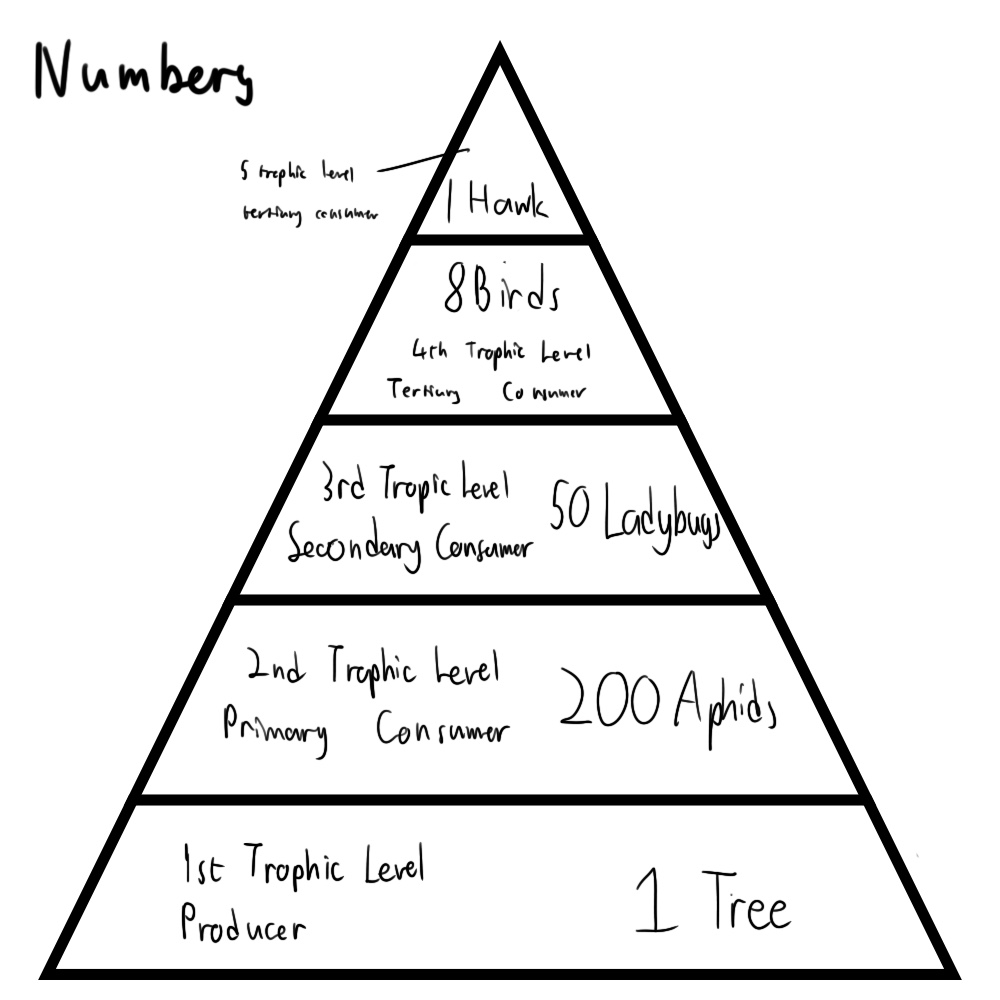 Numbers
5 trophic level
tertiary consumer
1 Hawk
8 Birds
4th Trophic Level
Tertiary Consumer
3rd Tropic Level
Secondary Consumer
50 Ladybugs
2nd Trophic Level
Primary Consumer
200 Aphids
1st Trophic Level
Producer
1 Tree